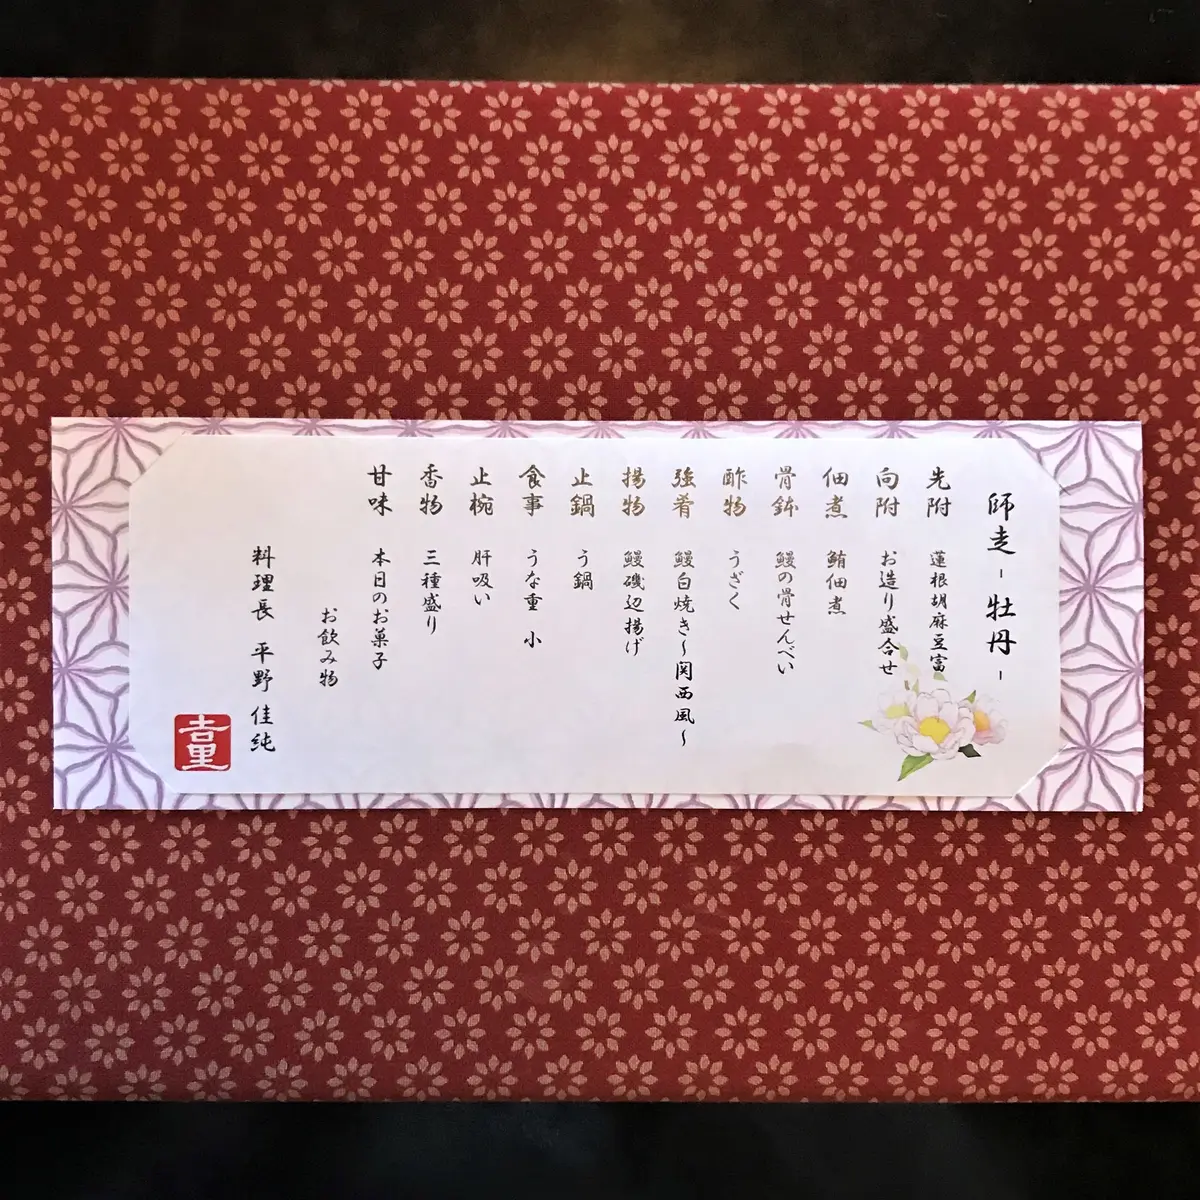 師走 - 牡丹 -
先附 蓮根胡麻豆富
向附 お造り盛合せ
佃煮 鮪佃煮
骨鉢 鰻の骨せんべい
酢物 うざく
強肴 鰻白焼き～関西風～
揚物 鰻磯辺揚げ
止鍋 う鍋
食事 うな重 小
止椀 肝吸い
香物 三種盛り
甘味 本日のお菓子
お飲み物
料理長 平野 佳純